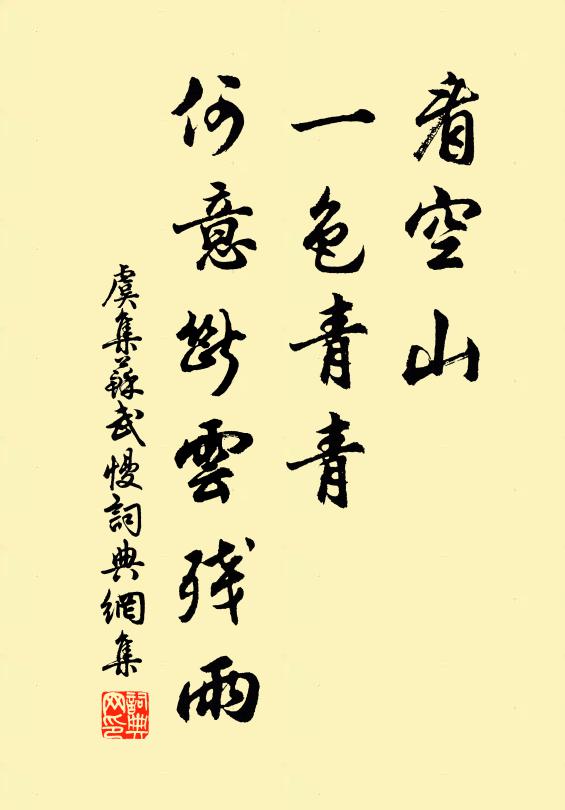 看空山
一色青青
何意斷雲殘雨
虞集蘇武慢詞典網集
詞典網印